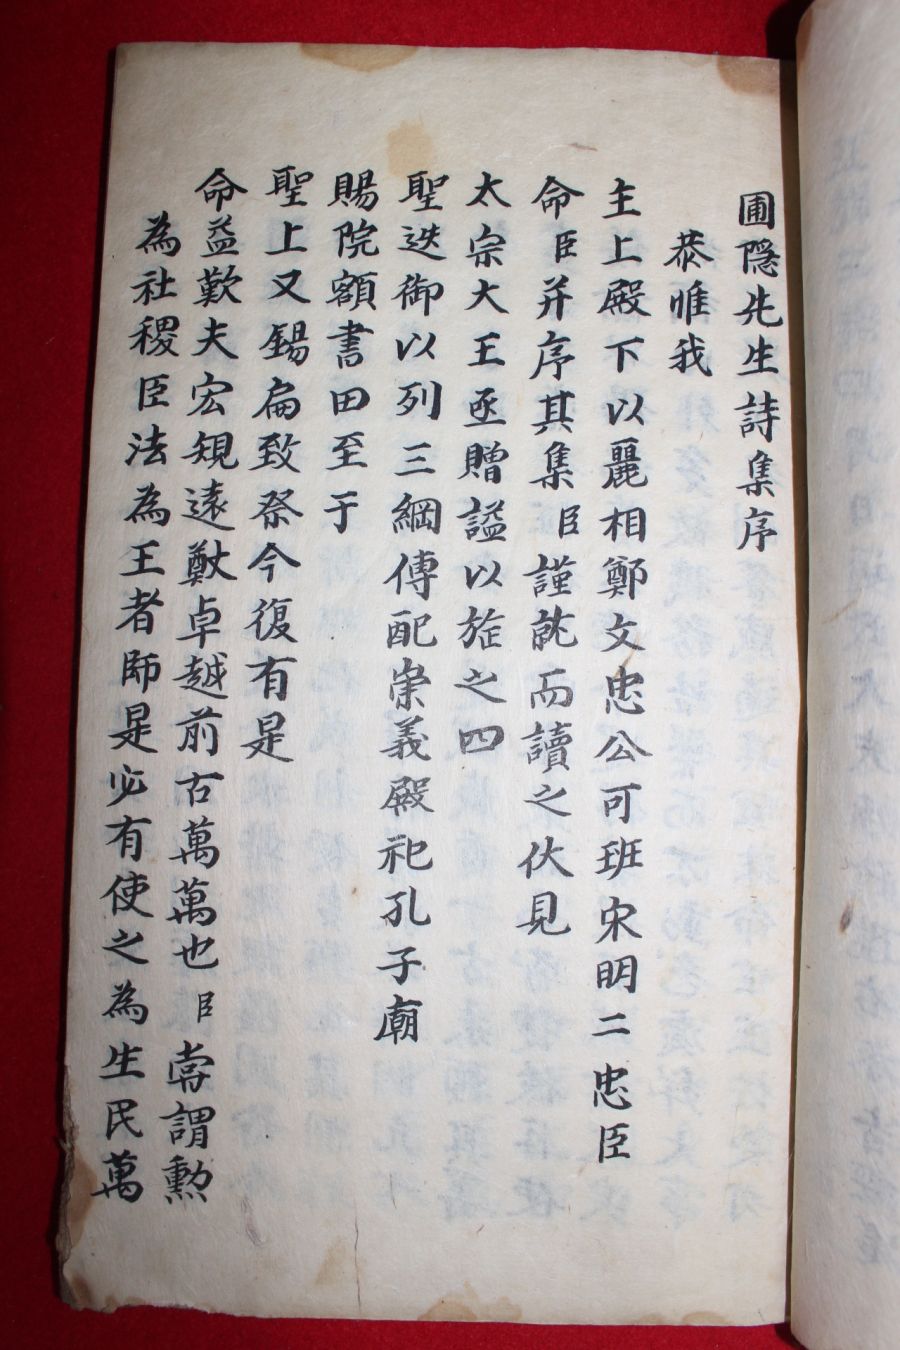 圃隐先生詩集序
恭惟我
主上殿下以麗相鄭文忠公可班宋明二忠臣
命臣并序其集臣謹就而讀之伏見
太宗大王亟贈諡以旌之四
聖迭御以列三綱傳配崇義殿祀孔子廟
賜院額書田至于
聖上又錫扁致祭今復有是
命益歎夫宏規遠猷卓越前古萬萬也臣嘗謂勲
為社稷臣法為王者師是必有使之為生民萬